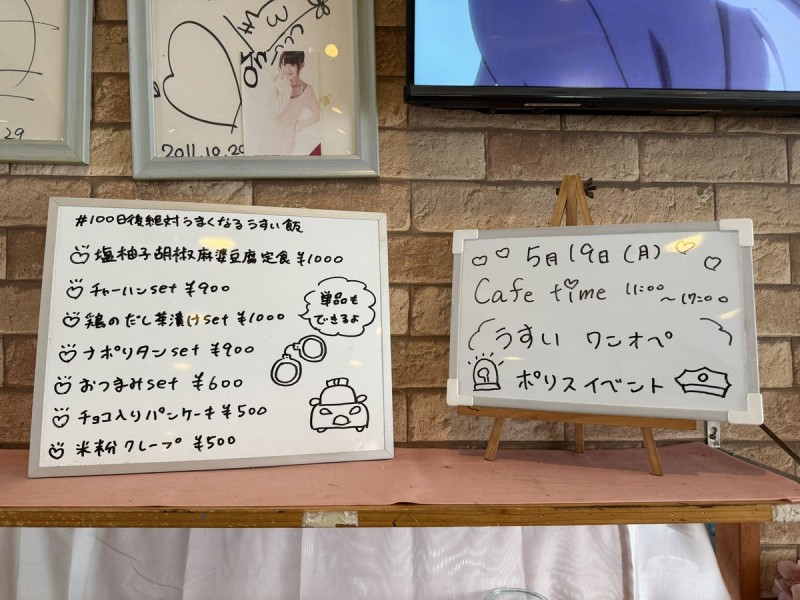 29
2011.10.29
#100日後絶対うまくなるうすい飯
塩柚子胡椒麻婆豆腐定食 ¥1000
チャーハンset ¥900
鶏のだし茶漬けset ¥1000
ナポリタンset ¥900
おつまみset ¥600
チョコ入りパンケーキ ¥500
米粉クレープ ¥500
単品も
できるよ
5月19日(月)
Cafe time 11:00
~17:00
うすい ワンオペ
ポリスイベント